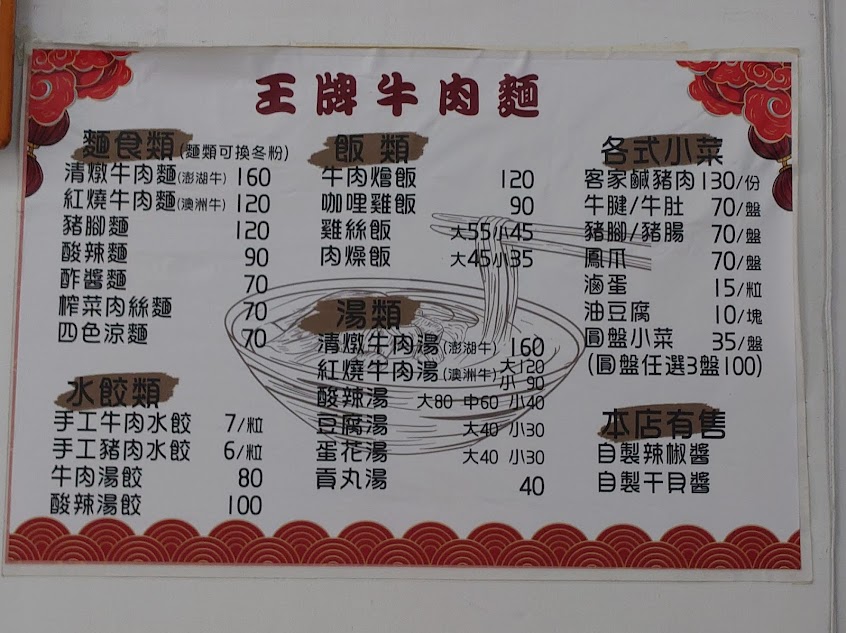 王牌牛肉麵
麵食類(麵類可換冬粉)
清燉牛肉麵(澎湖牛) 160
紅燒牛肉麵(澳洲牛) 120
豬腳麵 120
酸辣麵 90
酢醬麵 70
榨菜肉絲麵 70
四色涼麵 70
水餃類
手工牛肉水餃 7/粒
手工豬肉水餃 6/粒
牛肉湯餃 80
酸辣湯餃 100
飯類
牛肉燴飯 120
咖哩雞飯 90
雞絲飯 大55小45
肉燥飯 大45小35
湯類
清燉牛肉湯(澎湖牛) 160
紅燒牛肉湯(澳洲牛) 大120
小 90
酸辣湯 大80 中60 小40
豆腐湯 大40 小30
蛋花湯 大40 小30
貢丸湯 40
各式小菜
客家鹹豬肉130/份
牛腱/牛肚 70/盤
豬腳/豬腸 70/盤
鳳爪 70/盤
滷蛋 15/粒
油豆腐 10/塊
圓盤小菜 35/盤
(圓盤任選3盤100)
本店有售
自製辣椒醬
自製干貝醬